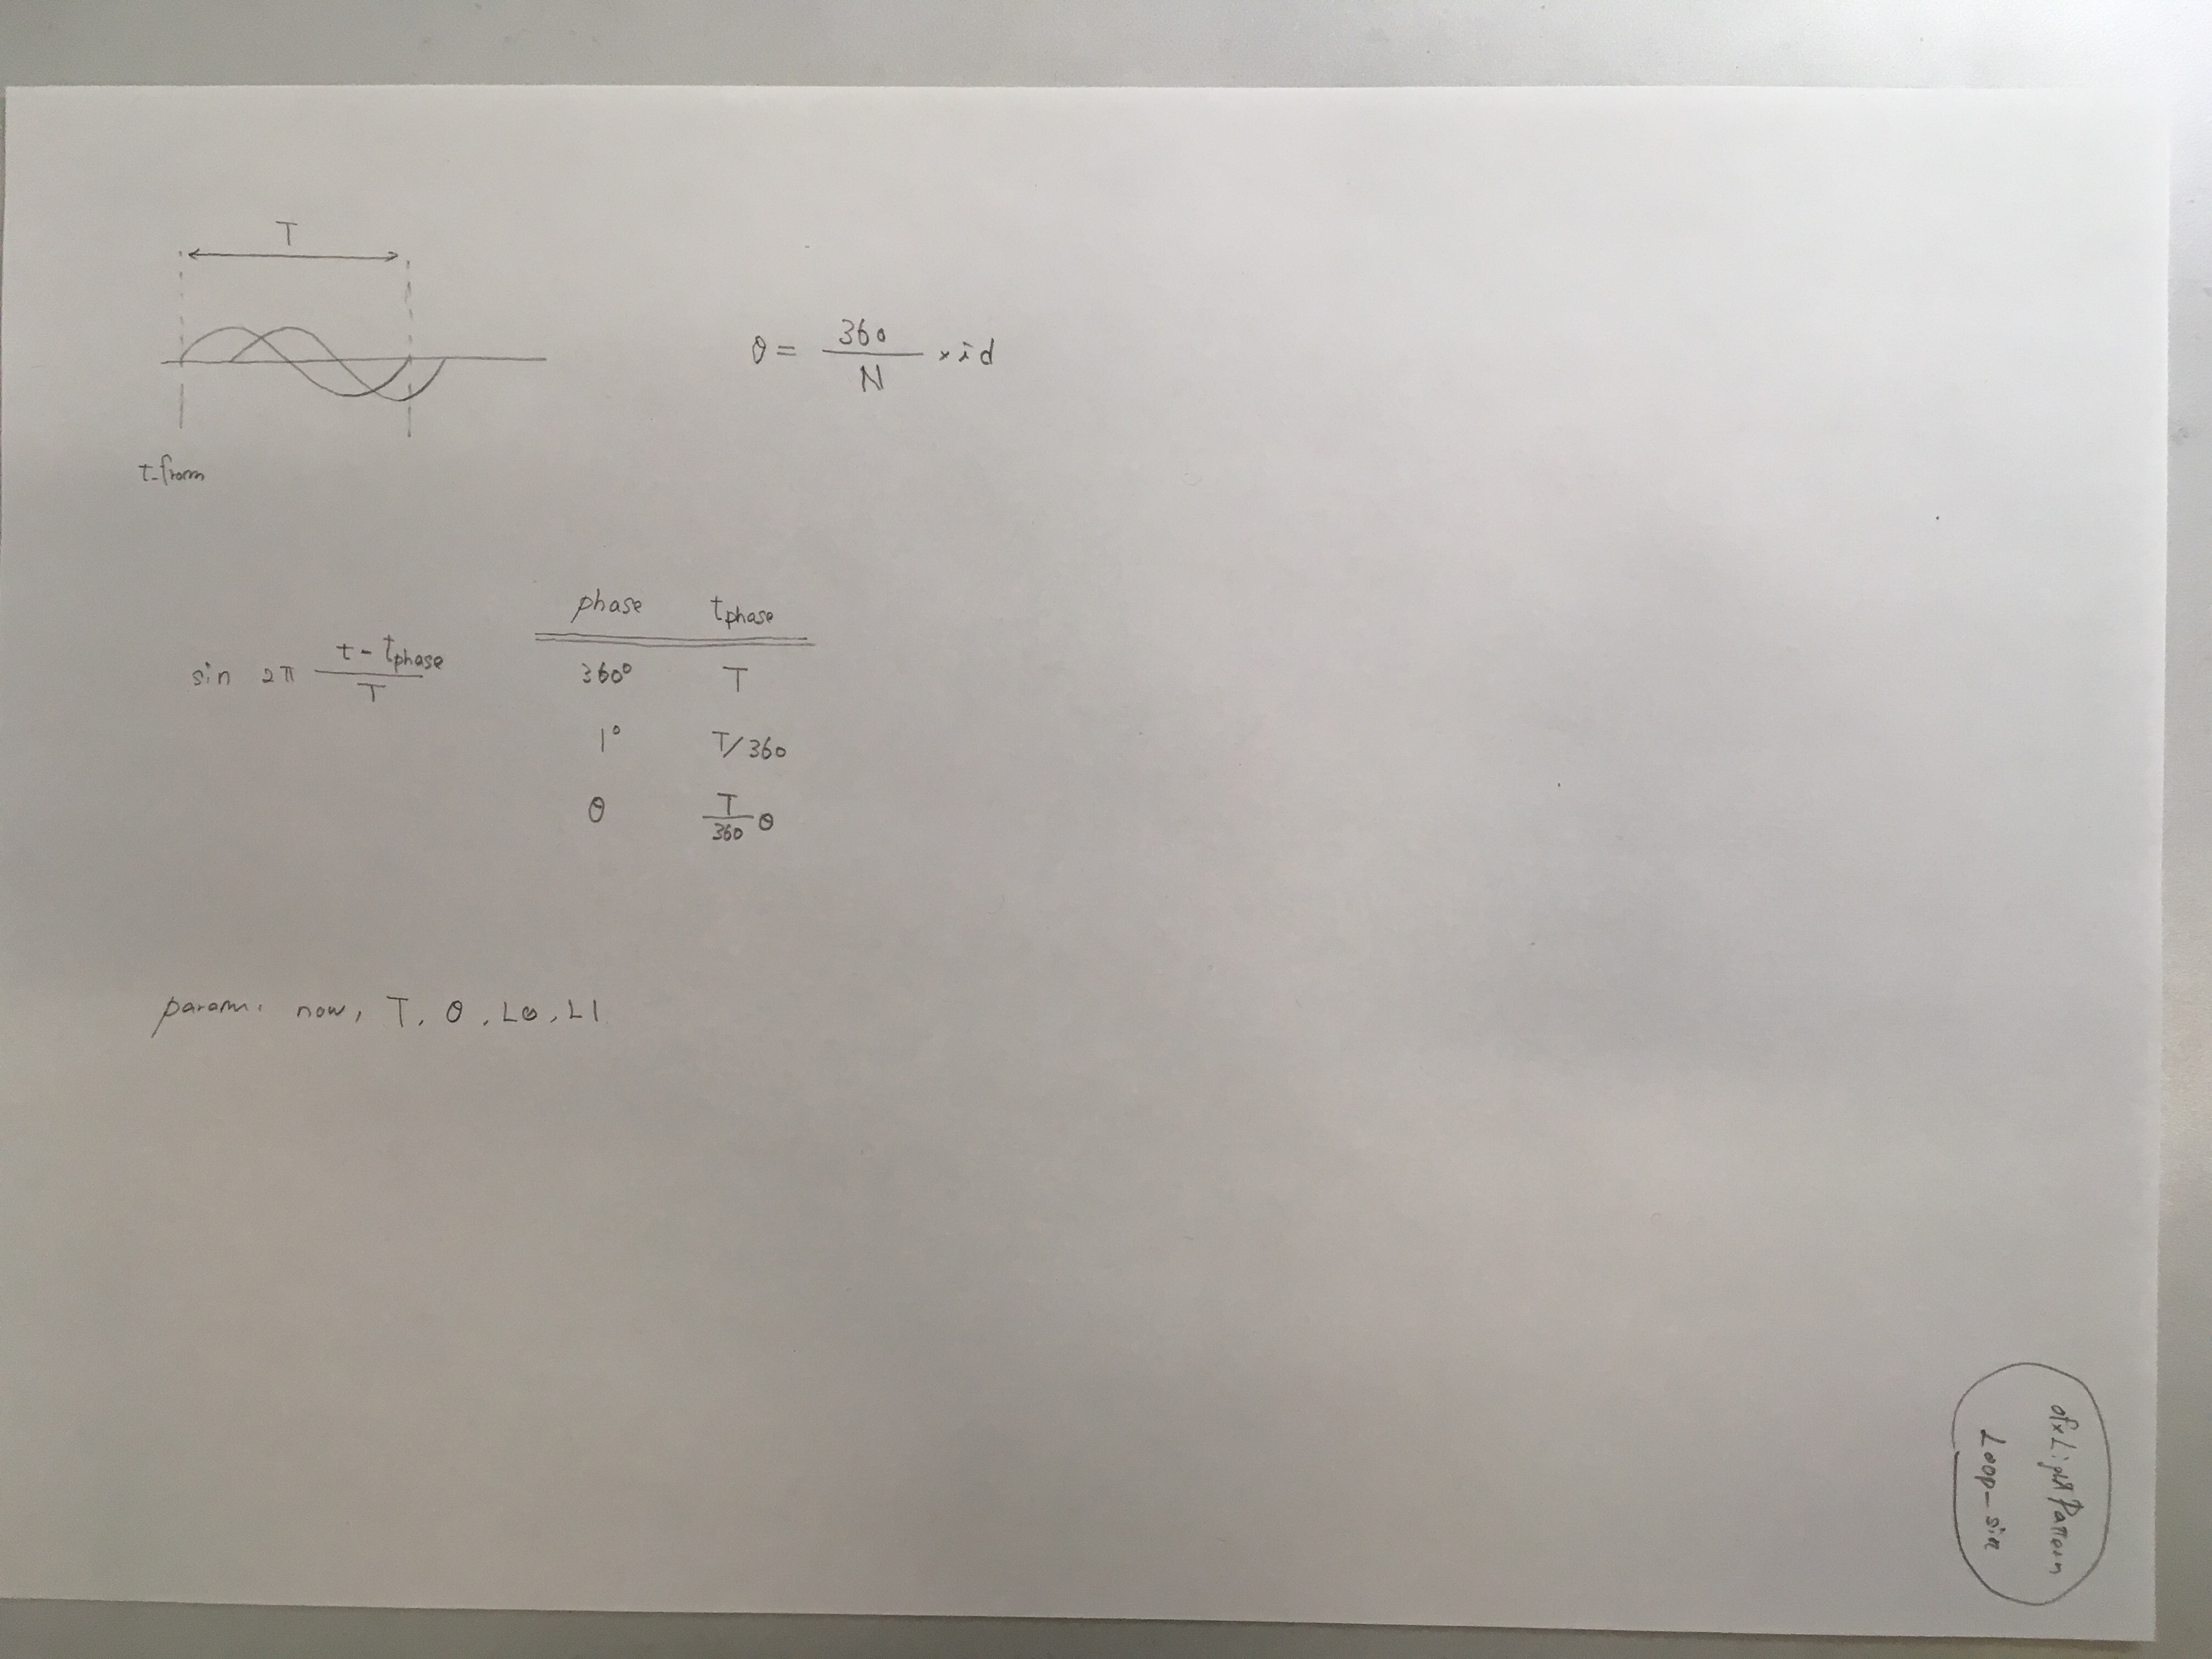 T
θ = 360/N × id
t_from
sin 2π (t - tphase)/T
phase tphase
360° T
1° T/360
θ T/360 θ
param: now, T, θ, L0, L1
ofxLightPattern
Loop_sin